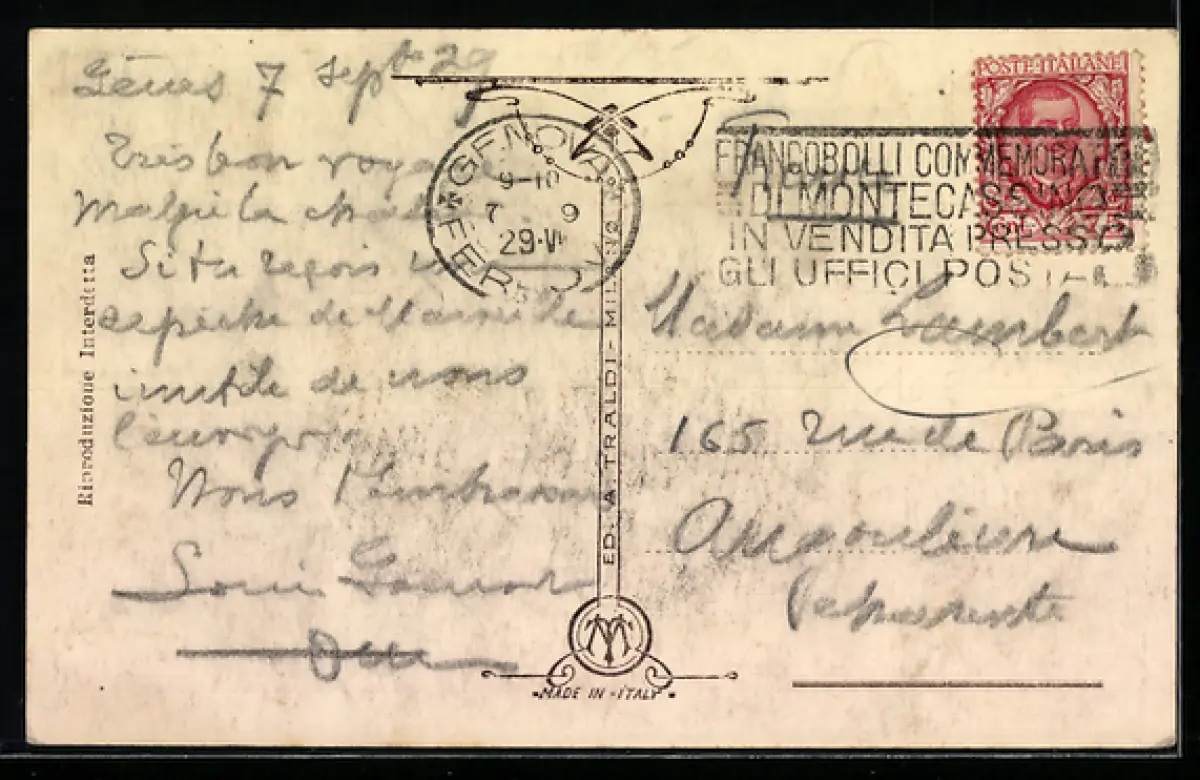 Gênes 7 septbre 29
Très bon voyage
Malgré la chaleur
Si tu reçois
de Marseille
inutile de nous
l'envoyer
Nous t'embrassons
Louis
Riproduzione Interdetta
GENOVA
FERROVIA
9-10
7 9
29·VII
ED. A. TRALDI - MILANO
MADE IN ITALY
POSTE·ITALIANE
FRANCOBOLLI COMMEMORATIVI
DI MONTECASSINO
IN VENDITA PRESSO
GLI UFFICI POSTALI
Madame Lambert
165 Rue de Paris
Angoulême
Charente